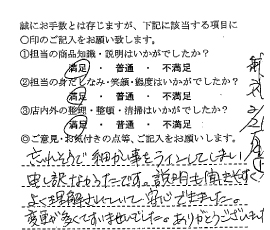 誠にお手数とは存じますが、下記に該当する項目に
〇印のご記入をお願い致します。
①担当の商品知識・説明はいかがでしたか？
満足 ・ 普通 ・ 不満足
②担当の身だしなみ・笑顔・態度はいかがでしたか？
満足 ・ 普通 ・ 不満足
③店内外の整理・整頓・清掃はいかがでしたか？
満足 ・ 普通 ・ 不満足
◎ご意見・お気付きの点等、ご記入をお願いします。
忘れそうで細かい事をラインしてしまい
申し訳なかったです。説明も聞きやすく
よく理解されていて安心できました。
変更が多くてすいませんでした。ありがとうございました